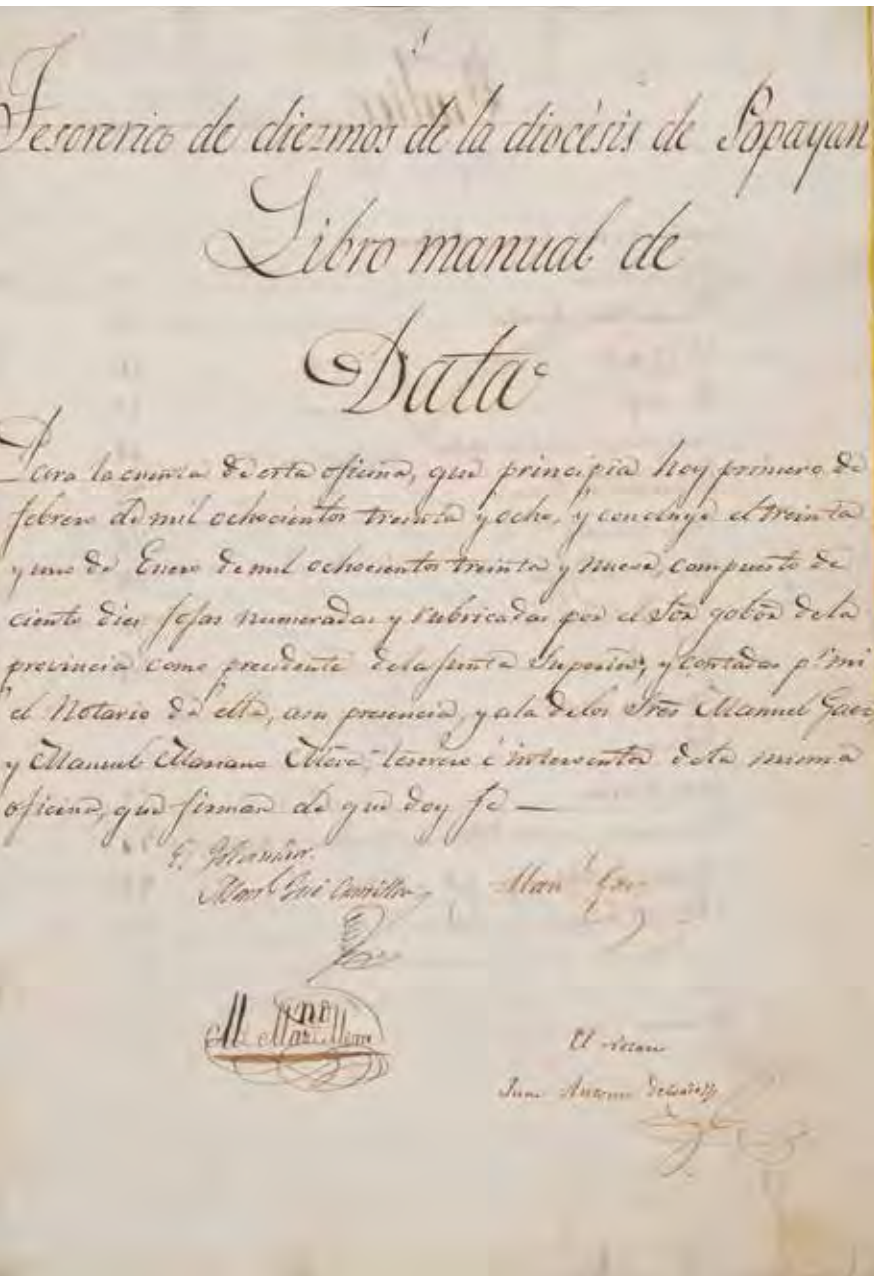 1
Tesoreria de diezmos de la diocésis de Popayan
Libro manual de
Data
Para la cuenta de esta oficina, que principia hoy primero de
febrero de mil ochocientos treinta y ocho, y concluye el treinta
y uno de Enero de mil ochocientos treinta y nueve, compuesto de
ciento dies fojas numeradas y rubricadas por el Sõr gobõr de la
provincia como presidente de la Junta Superior, y contadas pr mi
el Notario de ella, a su presencia, y a la de los Sres Manuel
y Manuel Mariano tesorero é interventor de la misma
oficina, que firman de que doy fe —
El Gobernador.
Manl José Man.l
El
Juan Antonio